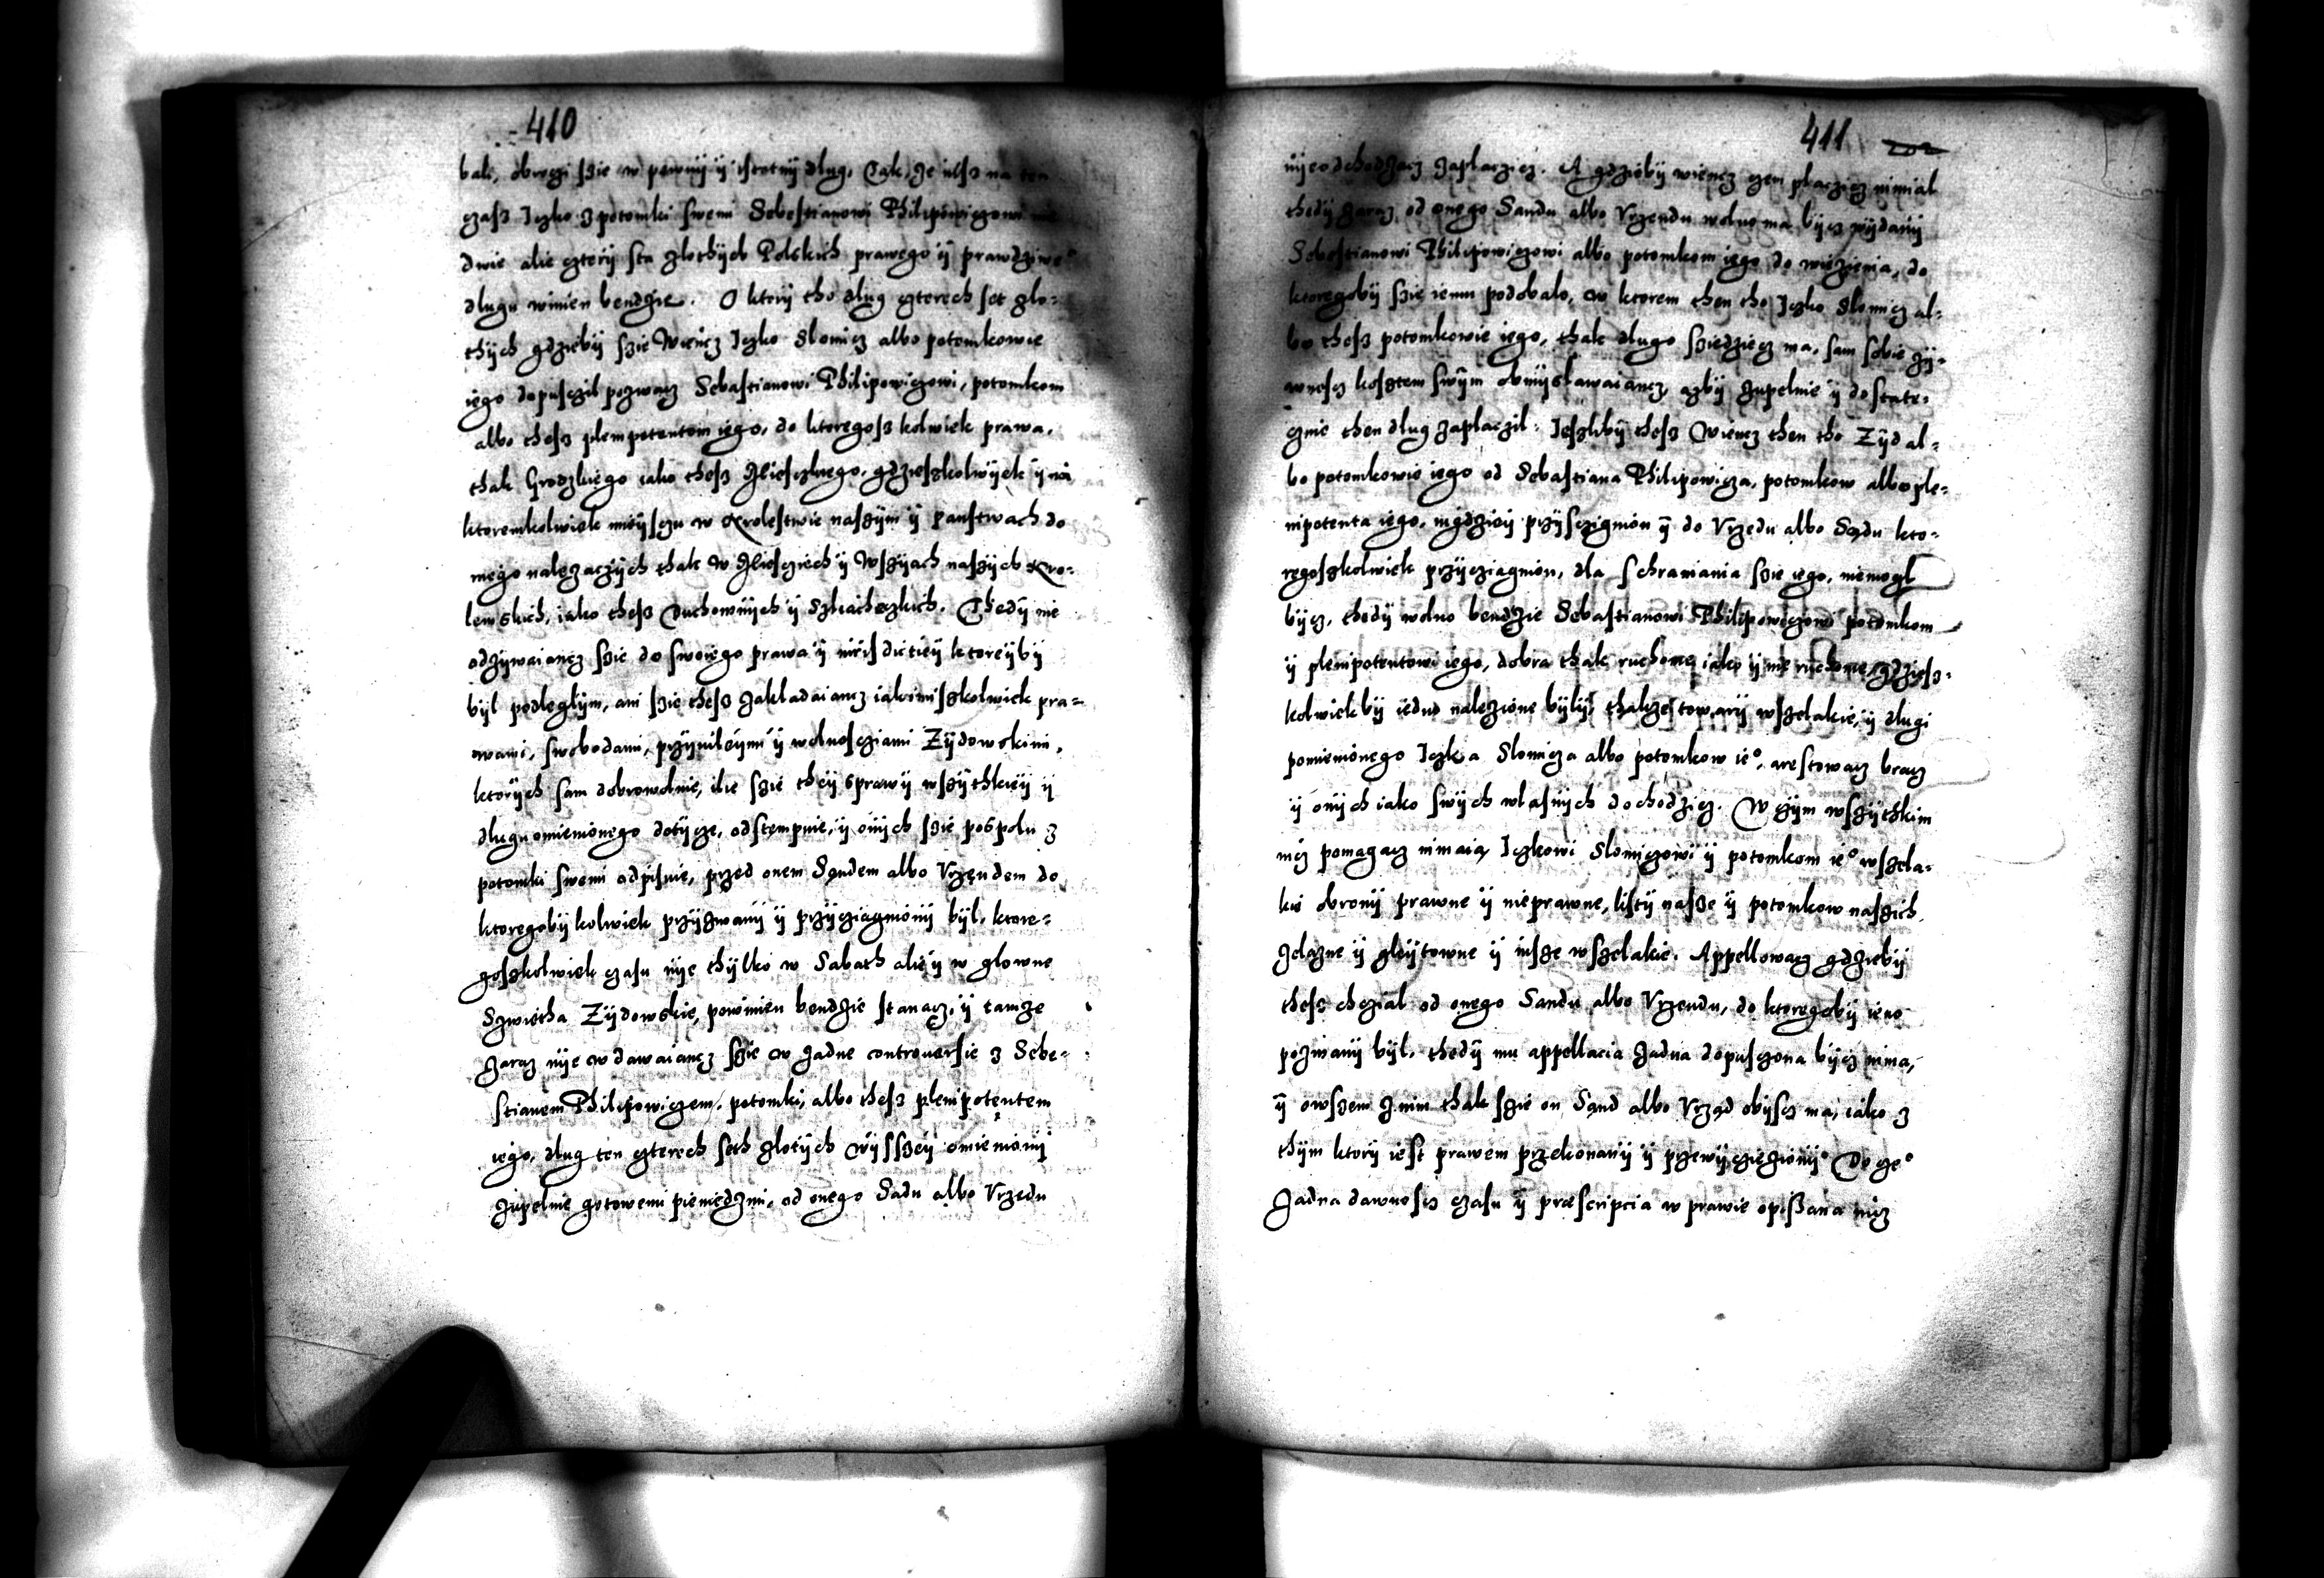 410
bali, obroczi szie w pewnÿ ÿ istotnÿ dlug, Tak ze iusz na ten
czasz Iczko z potomki swemi Sebestianowi Philipowiczowi nie
dwie alie czterÿ sta zlothÿch Polskich prawego ÿ prawdziweº
dlugu winien bendzie. O ktorÿ tho dlug czterech set zlo-
thÿch gdziebÿ szie Wiencz Iczko Slomicz albo potomkowie
iego dopusczil pozwacz Sebastianowi Philipowiczowi, potomkom
albo thesz plempotentom iego, do ktoregosz kolwiek prawa,
thak Grodzkiego iako thesz Mieszkiego, gdzieszkolwÿek ÿ na
ktoremkolwiek mieÿsczu w Krolestwie naszÿm ÿ panstwach do
niego nalezaczÿch thak w Miesciech ÿ Wsziach naszÿch Kro-
lewskich, iako thesz Duchownÿch ÿ Szliacheczkich. Thedÿ nie
odzÿwaiancz szie do swoiego prawa ÿ iurisdictieÿ ktoreÿbÿ
bÿl podleglÿm, ani szie thesz zakladaiancz iakimiszkolwiek pra-
wami, swobodami, przÿuileÿmi ÿ wolnosciami Zÿdowskimi,
ktorÿch sam dobrowolnie, ilie szie theÿ sprawÿ wszÿthkieÿ ÿ
dlugu omienionego dotÿcze, odstempuie, ÿ onÿch szie pospolu z
potomki swemi odpisuie, przed onem Sandem albo Vrzendem do
ktoregobÿ kolwiek przÿzwanÿ ÿ przÿciagnionÿ bÿl, ktore-
goszkolwiek czasu nÿe thÿlko w Sabath alie ÿ w glowne
Szwietha Zÿdowskie, powinien bendzie stanacz, ÿ tamze
zaraz nÿe wdawaiancz szie w zadne controuersie z Sebe-
stianem Philipowiczem, potomki, albo thesz plenipotentem
iego, dlug ten czterech seth zlotÿch wÿsszeÿ omienionÿ
zupelnie gotowemi pieniedzmi, od onego Sadu albo Vrzedu
411
nÿeodchodzacz zaplaczicz. A gdziebÿ wiencz czem placzicz nimial
thedÿ zaraz od onego Sandu albo Vrzendu wolno ma bÿcz wÿdanÿ
Sebestianowi Philipowiczowi albo potomkom iego do wiezienia, do
ktoregobÿ szie iemu podobalo, w ktorem then tho Iczko Slomicz al-
bo thesz potomkowie iego, thak dlugo sziedziecz ma, sam sobie zÿ-
wnoscz kosztem swÿm obmÿslawaiancz, azbÿ zupelnie ÿ dostate-
cznie then dlug zaplaczil. Ieszlibÿ thesz Wiencz then tho Zÿd al-
bo potomkowie iego od Sebastiana Philipowicza, potomkow albo ple-
nipotenta iego, nigdzieÿ przÿsczignion ÿ do Vrzedu albo Sądu kto-
regoszkolwiek przÿcziagnion, dla schraniania szie iego, niemogl
bÿcz, thedÿ wolno bendzie Sebastianowi Philipowiczowi potomkom
ÿ plenipotentowi iego, dobra thak ruchome iako ÿ nie ruchome, gdziesz-
kolwiekbÿ iedno nalezione bÿlÿ, thakze towarÿ wszelakie, ÿ dlugi
pomienionego Iczka Slomicza albo potomkow ieº, arestowacz bracz
ÿ onÿch iako swÿch wlasnÿch dochodzicz. W czÿm wszÿthkim
nicz pomagacz nimaią Iczkowi Slomiczowi ÿ potomkom ieº wszela-
kie obronÿ prawne ÿ nieprawne, listÿ nasze ÿ potomkow naszich
zelazne ÿ gleÿtowne ÿ insze wszelakie. Appellowacz gdziebÿ
thesz chczial od onego Sandu albo Vrzendu, do ktoregobÿ ieno
pozwanÿ bÿl, thedÿ mu appellacia zadna dopusczona bÿcz nima,
ÿ owszem z nim thak szie on Sand albo Vrząd obÿscz ma, iako z
thÿm ktorÿ iest prawem przekonanÿ ÿ przewÿcziezionÿ. Do czeº
zadna dawnoscz czasu ÿ præscripcia w prawie opiszana nicz